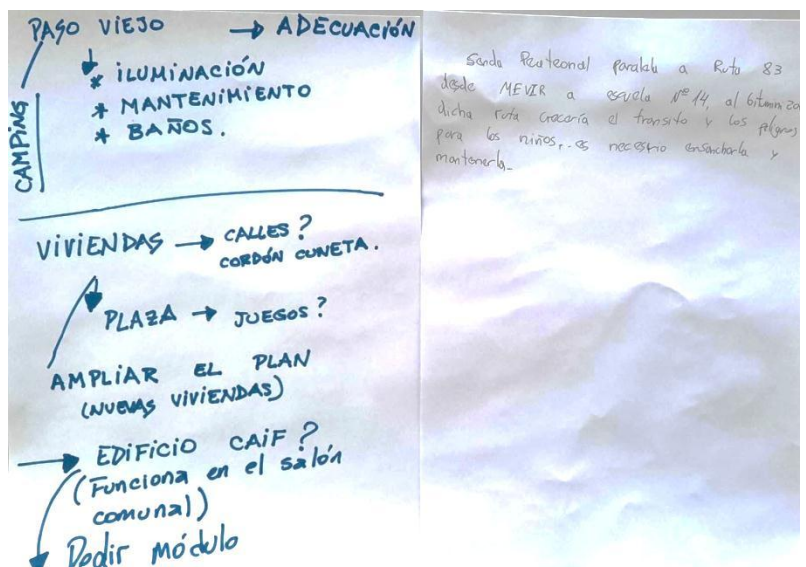 PASO VIEJO → ADECUACIÓN
* ILUMINACIÓN
* MANTENIMIENTO
* BAÑOS.
CAMPING
VIVIENDAS → CALLES?
CORDÓN CUNETA.
PLAZA → JUEGOS?
AMPLIAR EL PLAN
(NUEVAS VIVIENDAS)
→ EDIFICIO CAIF?
(Funciona en el salón
comunal)
Pedir módulo
Senda Peateonal paralela a Ruta 83
desde MEVIR a escuela Nº 14, al
dicha ruta crecería el transito y los peligros
para los niños, es necesario ensancharla y
mantenerla